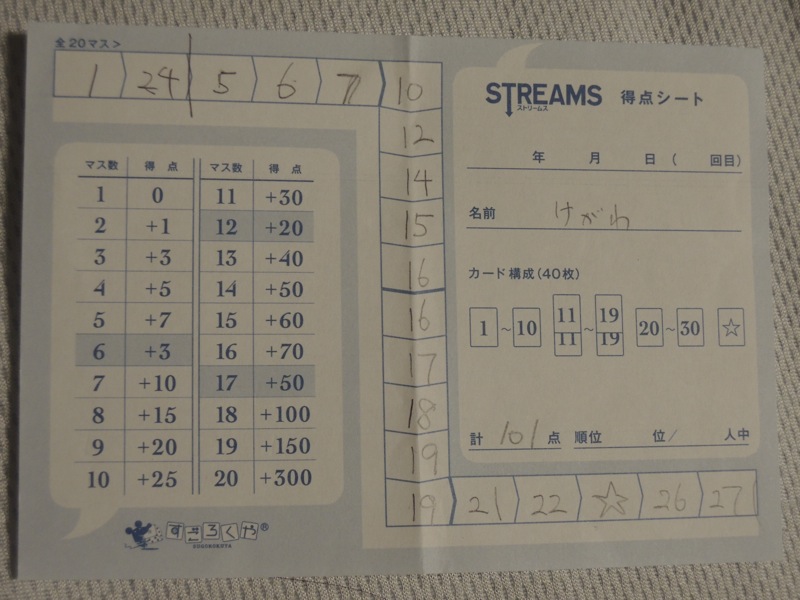 全20マス>
1 24 5 6 7 10
12
14
15
16
16
17
18
19
19 21 22 ☆ 26 27
マス数 得点 マス数 得点
1 0 11 +30
2 +1 12 +20
3 +3 13 +40
4 +5 14 +50
5 +7 15 +60
6 +3 16 +70
7 +10 17 +50
8 +15 18 +100
9 +20 19 +150
10 +25 20 +300
すごろくや®
SUGOROKUYA
STREAMS 得点シート
ストリームス
年 月 日 ( 回目)
名前 けがわ
カード構成(40枚)
1 ~ 10 11 ~ 19 20 ~ 30 ☆
11 19
計 101 点 順位 位/ 人中